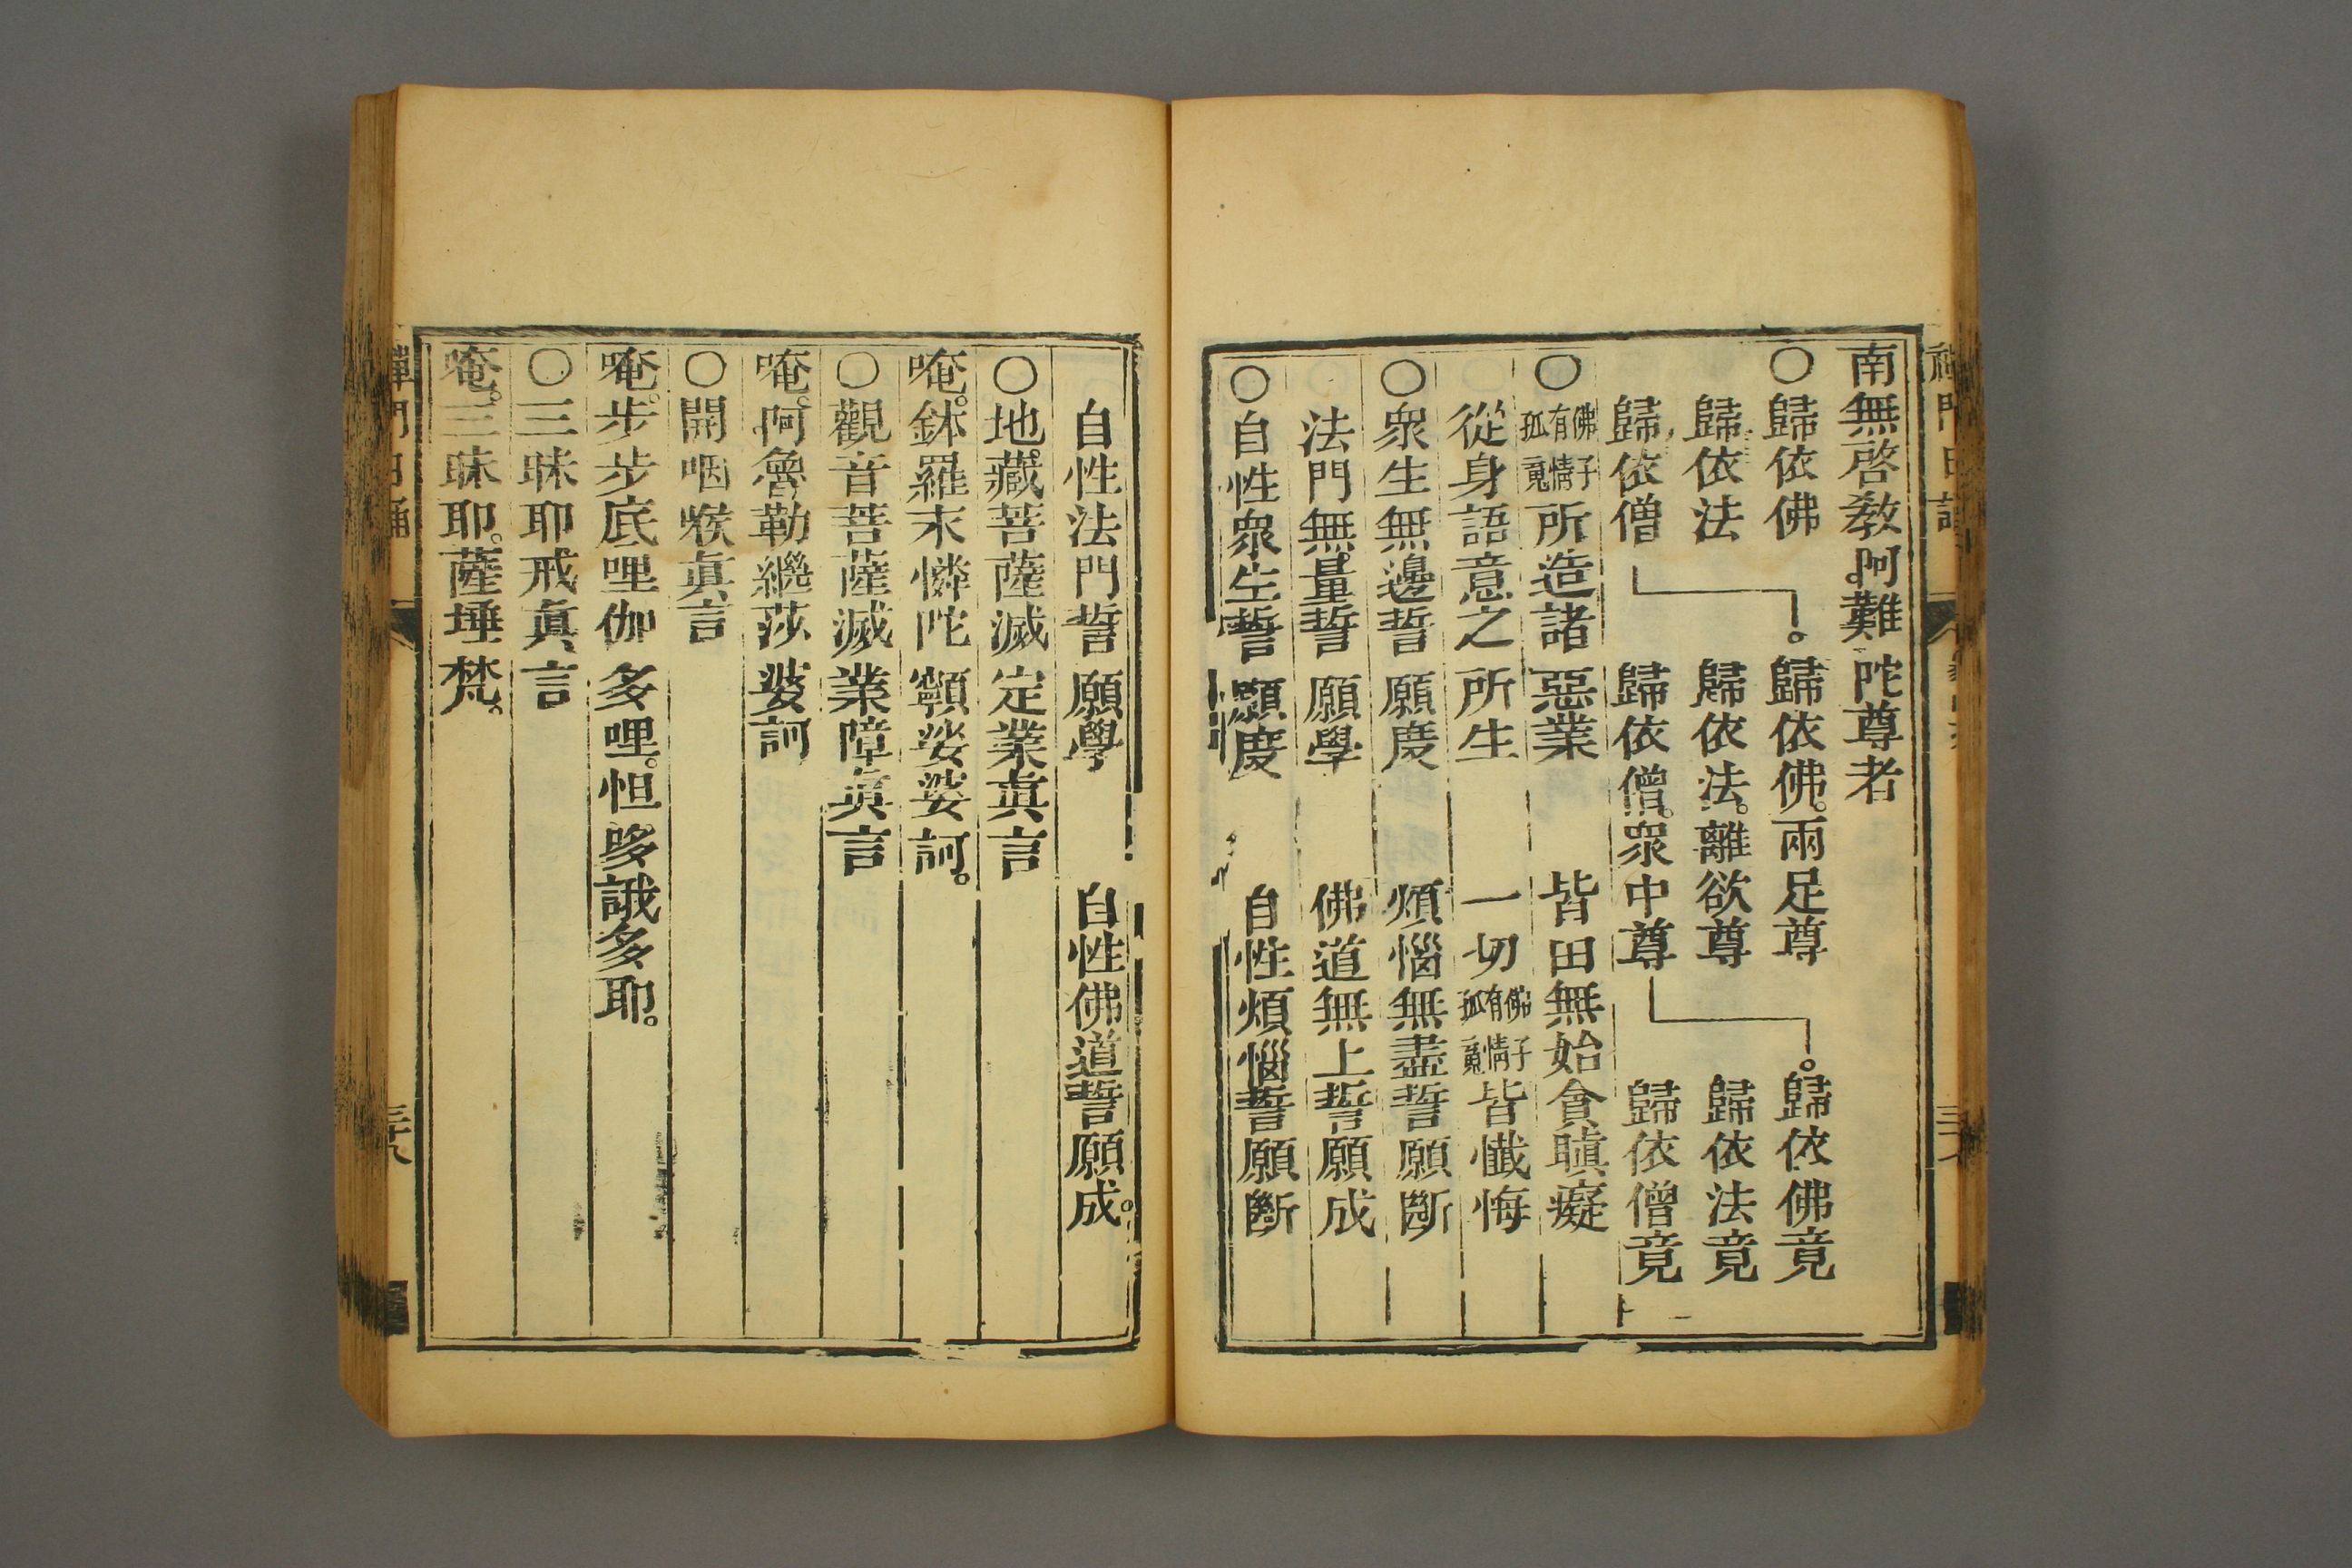 南無啓教阿難陀尊者
○歸依佛 歸依佛兩足尊 歸依佛竟
歸依法 歸依法離欲尊 歸依法竟
歸依僧 歸依僧衆中尊 歸依僧竟
○佛子有情孤䰟所造諸惡業 皆由無始貪瞋癡
從身語意之所生 一切佛子有情孤䰟皆懺悔
○衆生無邊誓願度 煩惱無盡誓願斷
法門無量誓願學 佛道無上誓願成
○自性衆生誓願度 自性煩惱誓願斷
自性法門誓願學 自性佛道誓願成。
○地藏菩薩滅定業眞言
唵。鉢羅末憐陀 顊娑娑訶。
○觀音菩薩滅業障眞言
唵。阿魯勒繼莎婆訶
○開咽喉眞言
唵。步步底哩伽多哩。怛哆誐多耶。
○三昧耶戒眞言
唵。三昧耶。薩埵梵。
禪門日誦
三十八